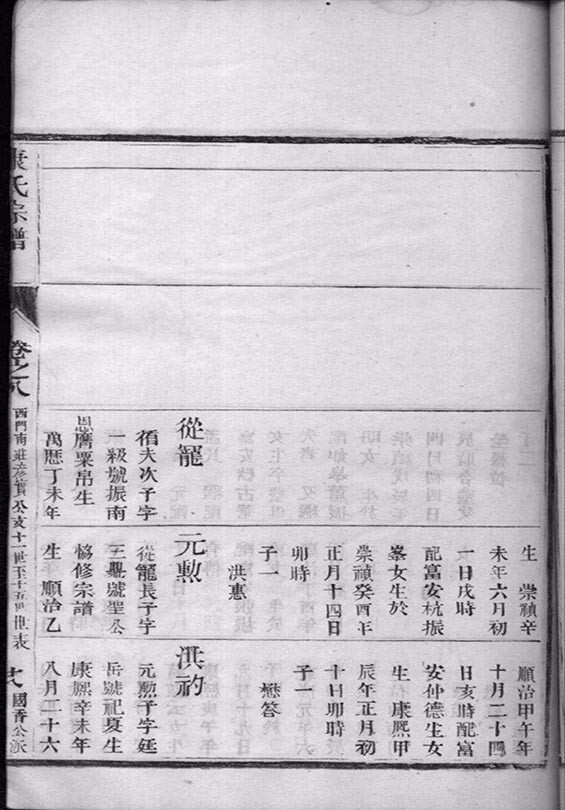 從寵
夫次子字
一級號振南
恩膺粟帛生
萬厯丁未年
生 崇禎辛
未年六月初
一日戌時
配富安杭振
峯女生於
崇禎癸酉年
正月十四日
卯時
子一
洪惠
元勲
從寵長子字
三號聖公
恊修宗譜
生 順治乙
順治甲午年
十月二十四
日亥時配富
安仲德生女
生 康熙甲
辰年正月初
十日卯時
子一
懋答
洪礿
元勲子字廷
岳號祀夏生
康熙辛未年
八月二十六
康氏宗譜
卷之八
西門南莊彦實公支十一世至十五世世表
國香公派